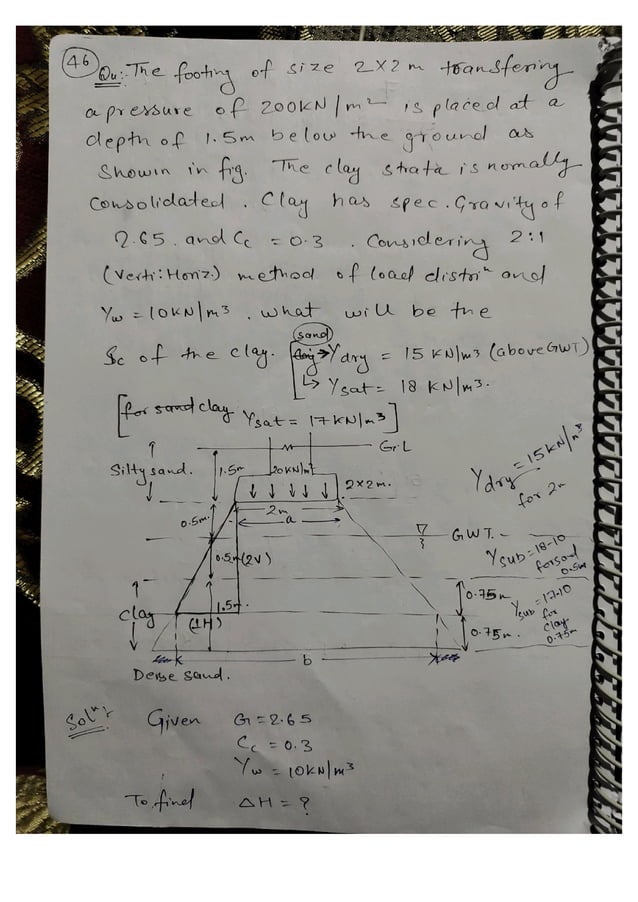 46
Qu:- The footing of size 2×2m transfering
a pressure of 200KN/m² is placed at a
depth of 1.5m below the ground as
Showin in fig. The clay strata is nomally
Consolidated. Clay has spec. Gravity of
2.65. and Cc = 0.3. Considering 2:1
(Verti:Horiz.) method of load distriⁿ and
γw = 10KN/m³. what will be the
Sc of the clay. (sand) γdry = 15 KN/m³ (above GWT)
↳ γsat = 18 KN/m³.
[for clay γsat = 17KN/m³]
G.L
Silty sand. 1.5m 20KN/m² 2×2m.
γdry = 15KN/m³
for 2m
0.5m. 2m
a
G.W.T.
γsub = 18-10
for sand
0.5m
0.5m (2V)
clay 1.5m
(1H)
0.75m
0.75m.
γsub = 17-10
for
clay
0.75m
b
Dense sand.
Solⁿ:- Given G = 2.65
Cc = 0.3
γw = 10KN/m³
To find ΔH = ?